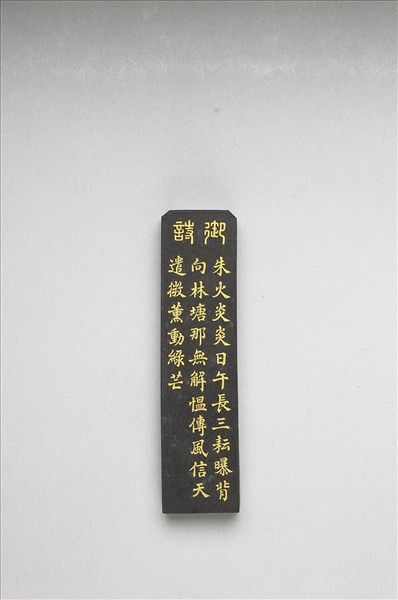 御詩
朱火炎炎日午長三耘曝背
向林塘那無解愠傳風信天
遣微薰動綠芒